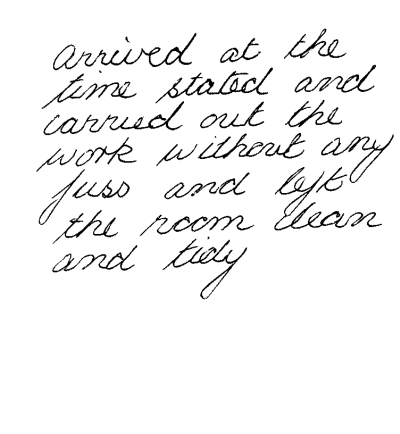 arrived at the
time stated and
carried out the
work without any
fuss and left
the room clean
and tidy